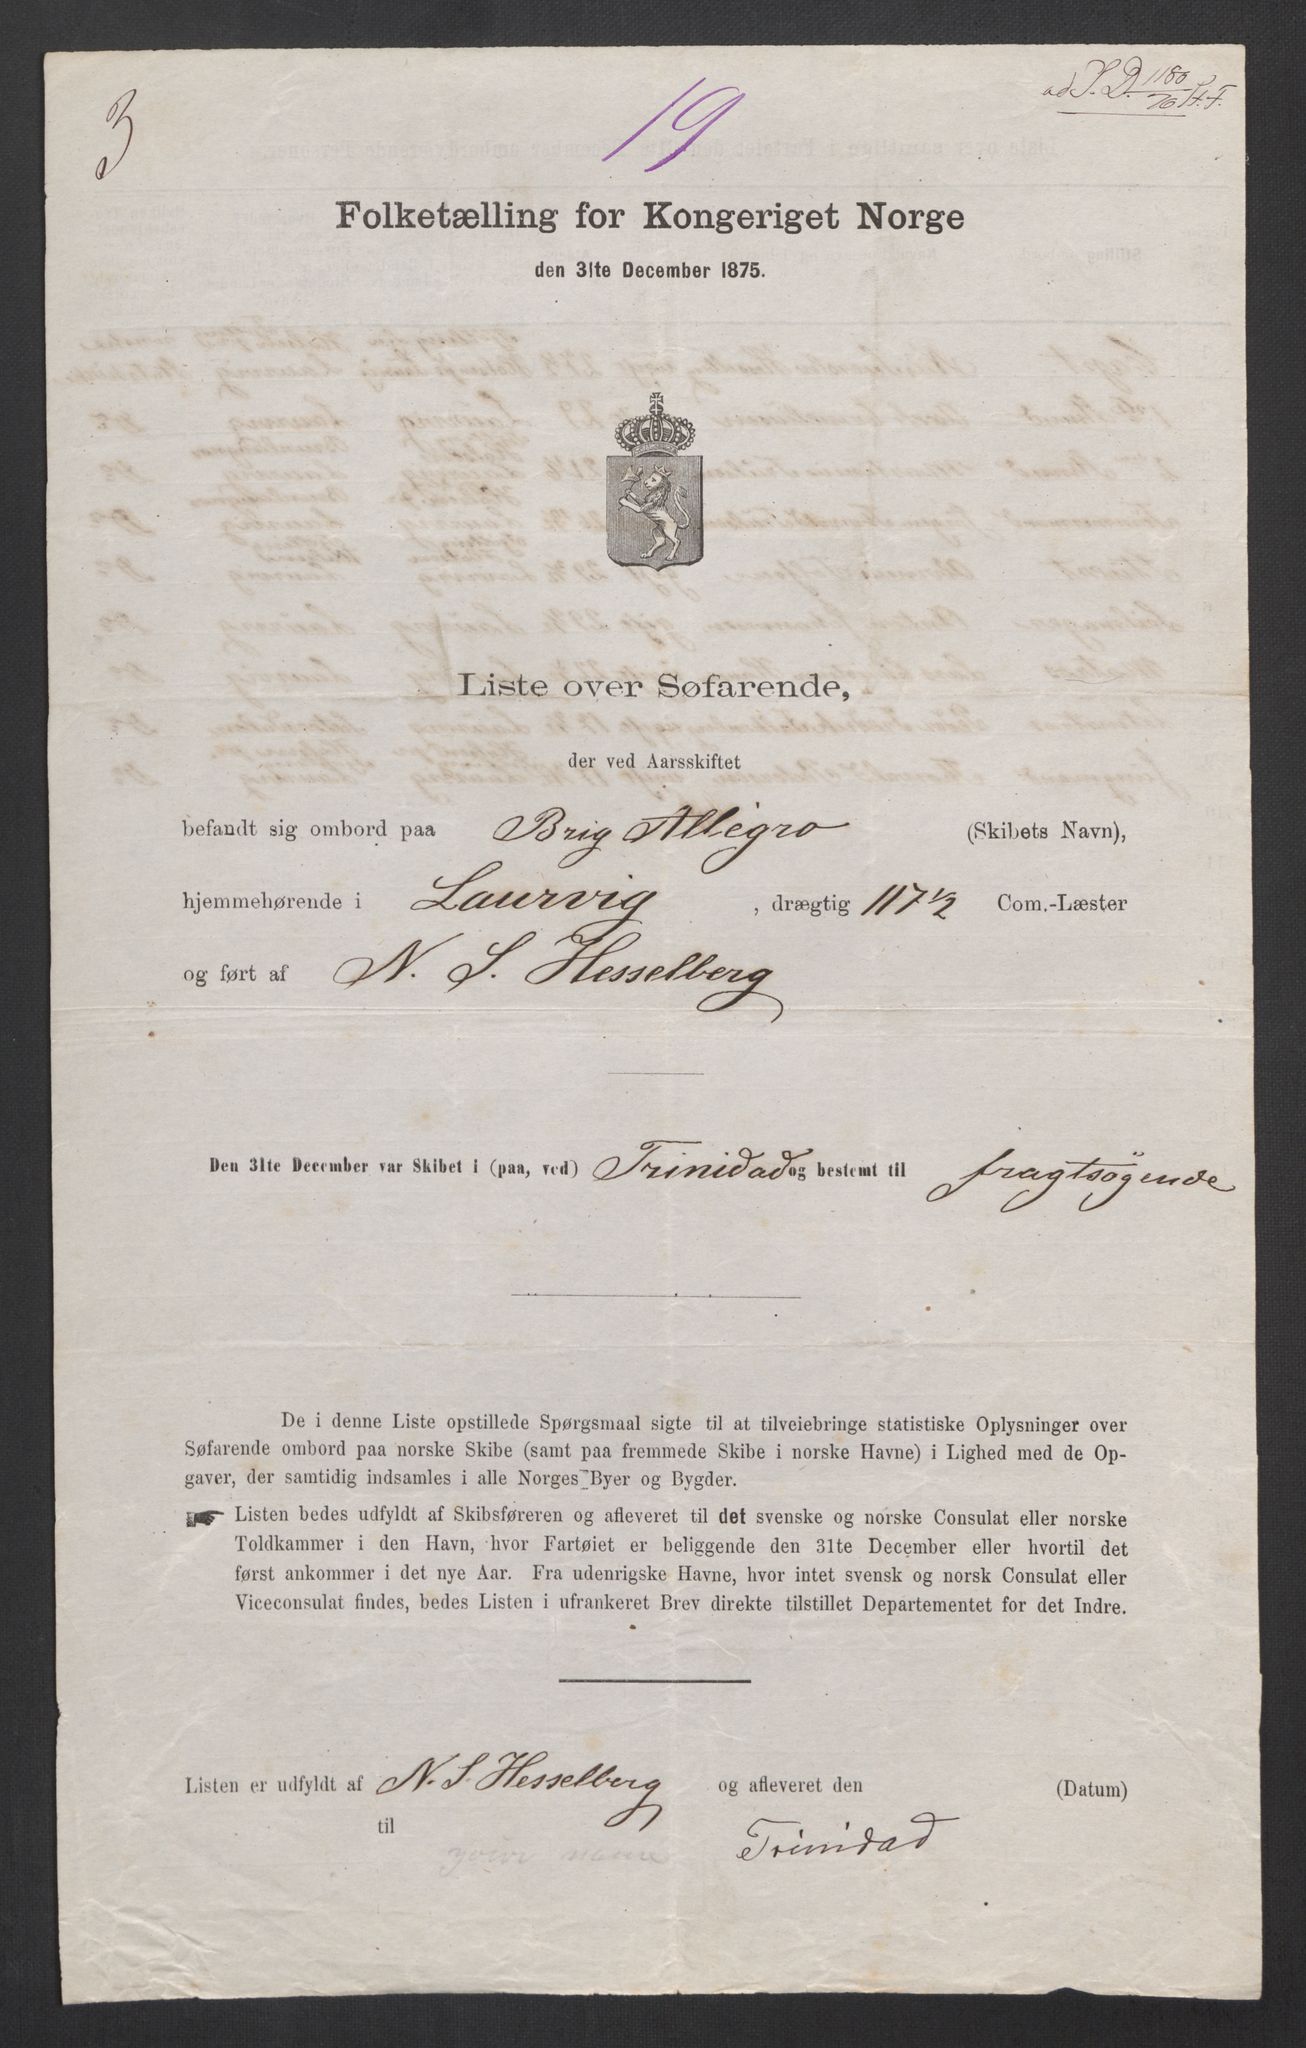 3
19
ad J. D. 1180/76 H. F.
Folketælling for Kongeriget Norge
den 31te December 1875.
Liste over Søfarende,
der ved Aarsskiftet
befandt sig ombord paa Brig Allegro (Skibets Navn),
hjemmehørende i Laurvig , drægtig 117 1/2 Com.-Læster
og ført af N. S. Hesselberg
Den 31te December var Skibet i (paa, ved) Trinidad og bestemt til fragtsögende
De i denne Liste opstillede Spørgsmaal sigte til at tilveiebringe statistiske Oplysninger over
Søfarende ombord paa norske Skibe (samt paa fremmede Skibe i norske Havne) i Lighed med de Op-
gaver, der samtidig indsamles i alle Norges Byer og Bygder.
Listen bedes udfyldt af Skibsføreren og afleveret til det svenske og norske Consulat eller norske
Toldkammer i den Havn, hvor Fartøiet er beliggende den 31te December eller hvortil det
først ankommer i det nye Aar. Fra udenrigske Havne, hvor intet svensk og norsk Consulat eller
Viceconsulat findes, bedes Listen i ufrankeret Brev direkte tilstillet Departementet for det Indre.
Listen er udfyldt af N. S. Hesselberg og afleveret den (Datum)
til your name Trinidad